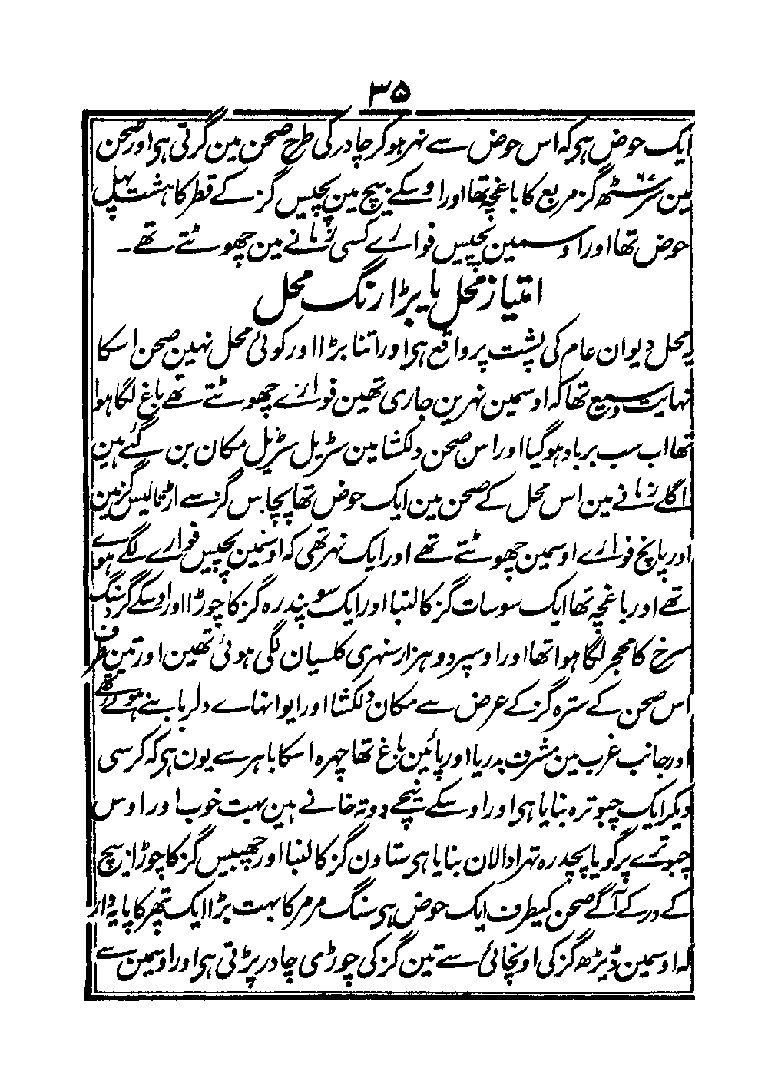 ۳۵
ایک حوض ہی کہ اس حوض سے نہر ہو کر چادر کی طرح صحن مین گرتی ہی اور صحن
مین سرسٹھ ۶۷ گز مربع کا باغچہ تھا اور اوسکے بیچ مین پچیس گز کے قطر کا ہشت پہل
حوض تھا اور اوسمین پچیس فوارے کسی زمانے مین چھوٹتے تھے ۔
امتیاز محل یا بڑا رنگ محل
یہ محل دیوان عام کی پشت پر واقع ہی اور اتنا بڑا اور کوئی محل نہین صحن اسکا
نہایت وسیع تھا کہ اوسمین نہرین جاری تھین فوارے چھوٹتے تھے باغ لگا ہوا
تھا اب سب برباد ہو گیا اور اس صحن دلکشا مین سڑیل سڑیل مکان بن گئے ہین
اگلے زمانے مین اس محل کے صحن مین ایک حوض تھا پچاس گز سے اڑتالیس گز مین
اور پانچ فوارے اوسمین چھوٹتے تھے اور ایک نہر تھی کہ اوسمین پچیس فوارے لگے ہوے
تھے اور باغچہ تھا ایک سو سات گز کا لنبا اور ایک سو پندرہ گز کا چوڑا اور اوسکے گرد سنگ
سرخ کا محجر لگا ہوا تھا اور اوسپر دو ہزار سنہری کلسیان لگی ہوئی تھین اور تین طرف
اس صحن کے سترہ گز کے عرض سے مکان دلکشا اور ایوانہاے دلربا بنے ہوے تھے
اور جانب غرب مین مشرف بدریا اور پائین باغ تھا چہرہ اسکا باہر سے یون ہی کہ کرسی
دیکر ایک چبوترہ بنایا ہی اور اوسکے نیچے دو تہ خانے ہین بہت خوب اور اوس
چبوترے پر گویا پچدرہ تہرا دالان بنایا ہی ستاون گز کا لنبا اور چھبیس گز کا چوڑا بیچ
کے در کے آگے صحن کیطرف ایک حوض ہی سنگ مرمر کا بہت بڑا ایک پتھر کا پایہ دار
کہ اوسمین ڈیڑھ گز کی اونچائی سے تین گز کی چوڑی چادر پڑتی ہی اور اوسمین سے